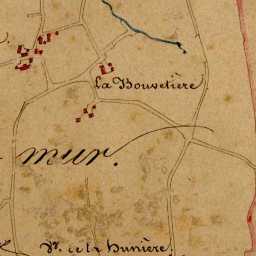 la Bouvetière
mur.
de la Hunière.